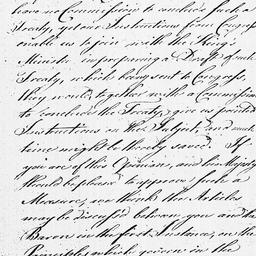 have no Commission to conclude such a
Treaty, yet our Instructions from Congress
enable us to join with the King's
Minister in preparing a Draft of such
Treaty, which being sent to Congress,
they would, together with a Commission
to conclude the Treaty, give us pointed
Instructions on the Subject, and much
time might be thereby saved. If
you are of this Opinion, and his Majesty
should be pleased to approve such a
Measure, we think the Articles
may be discussed between you and the
Baron in the first Instance, on the
Principles which govern in the